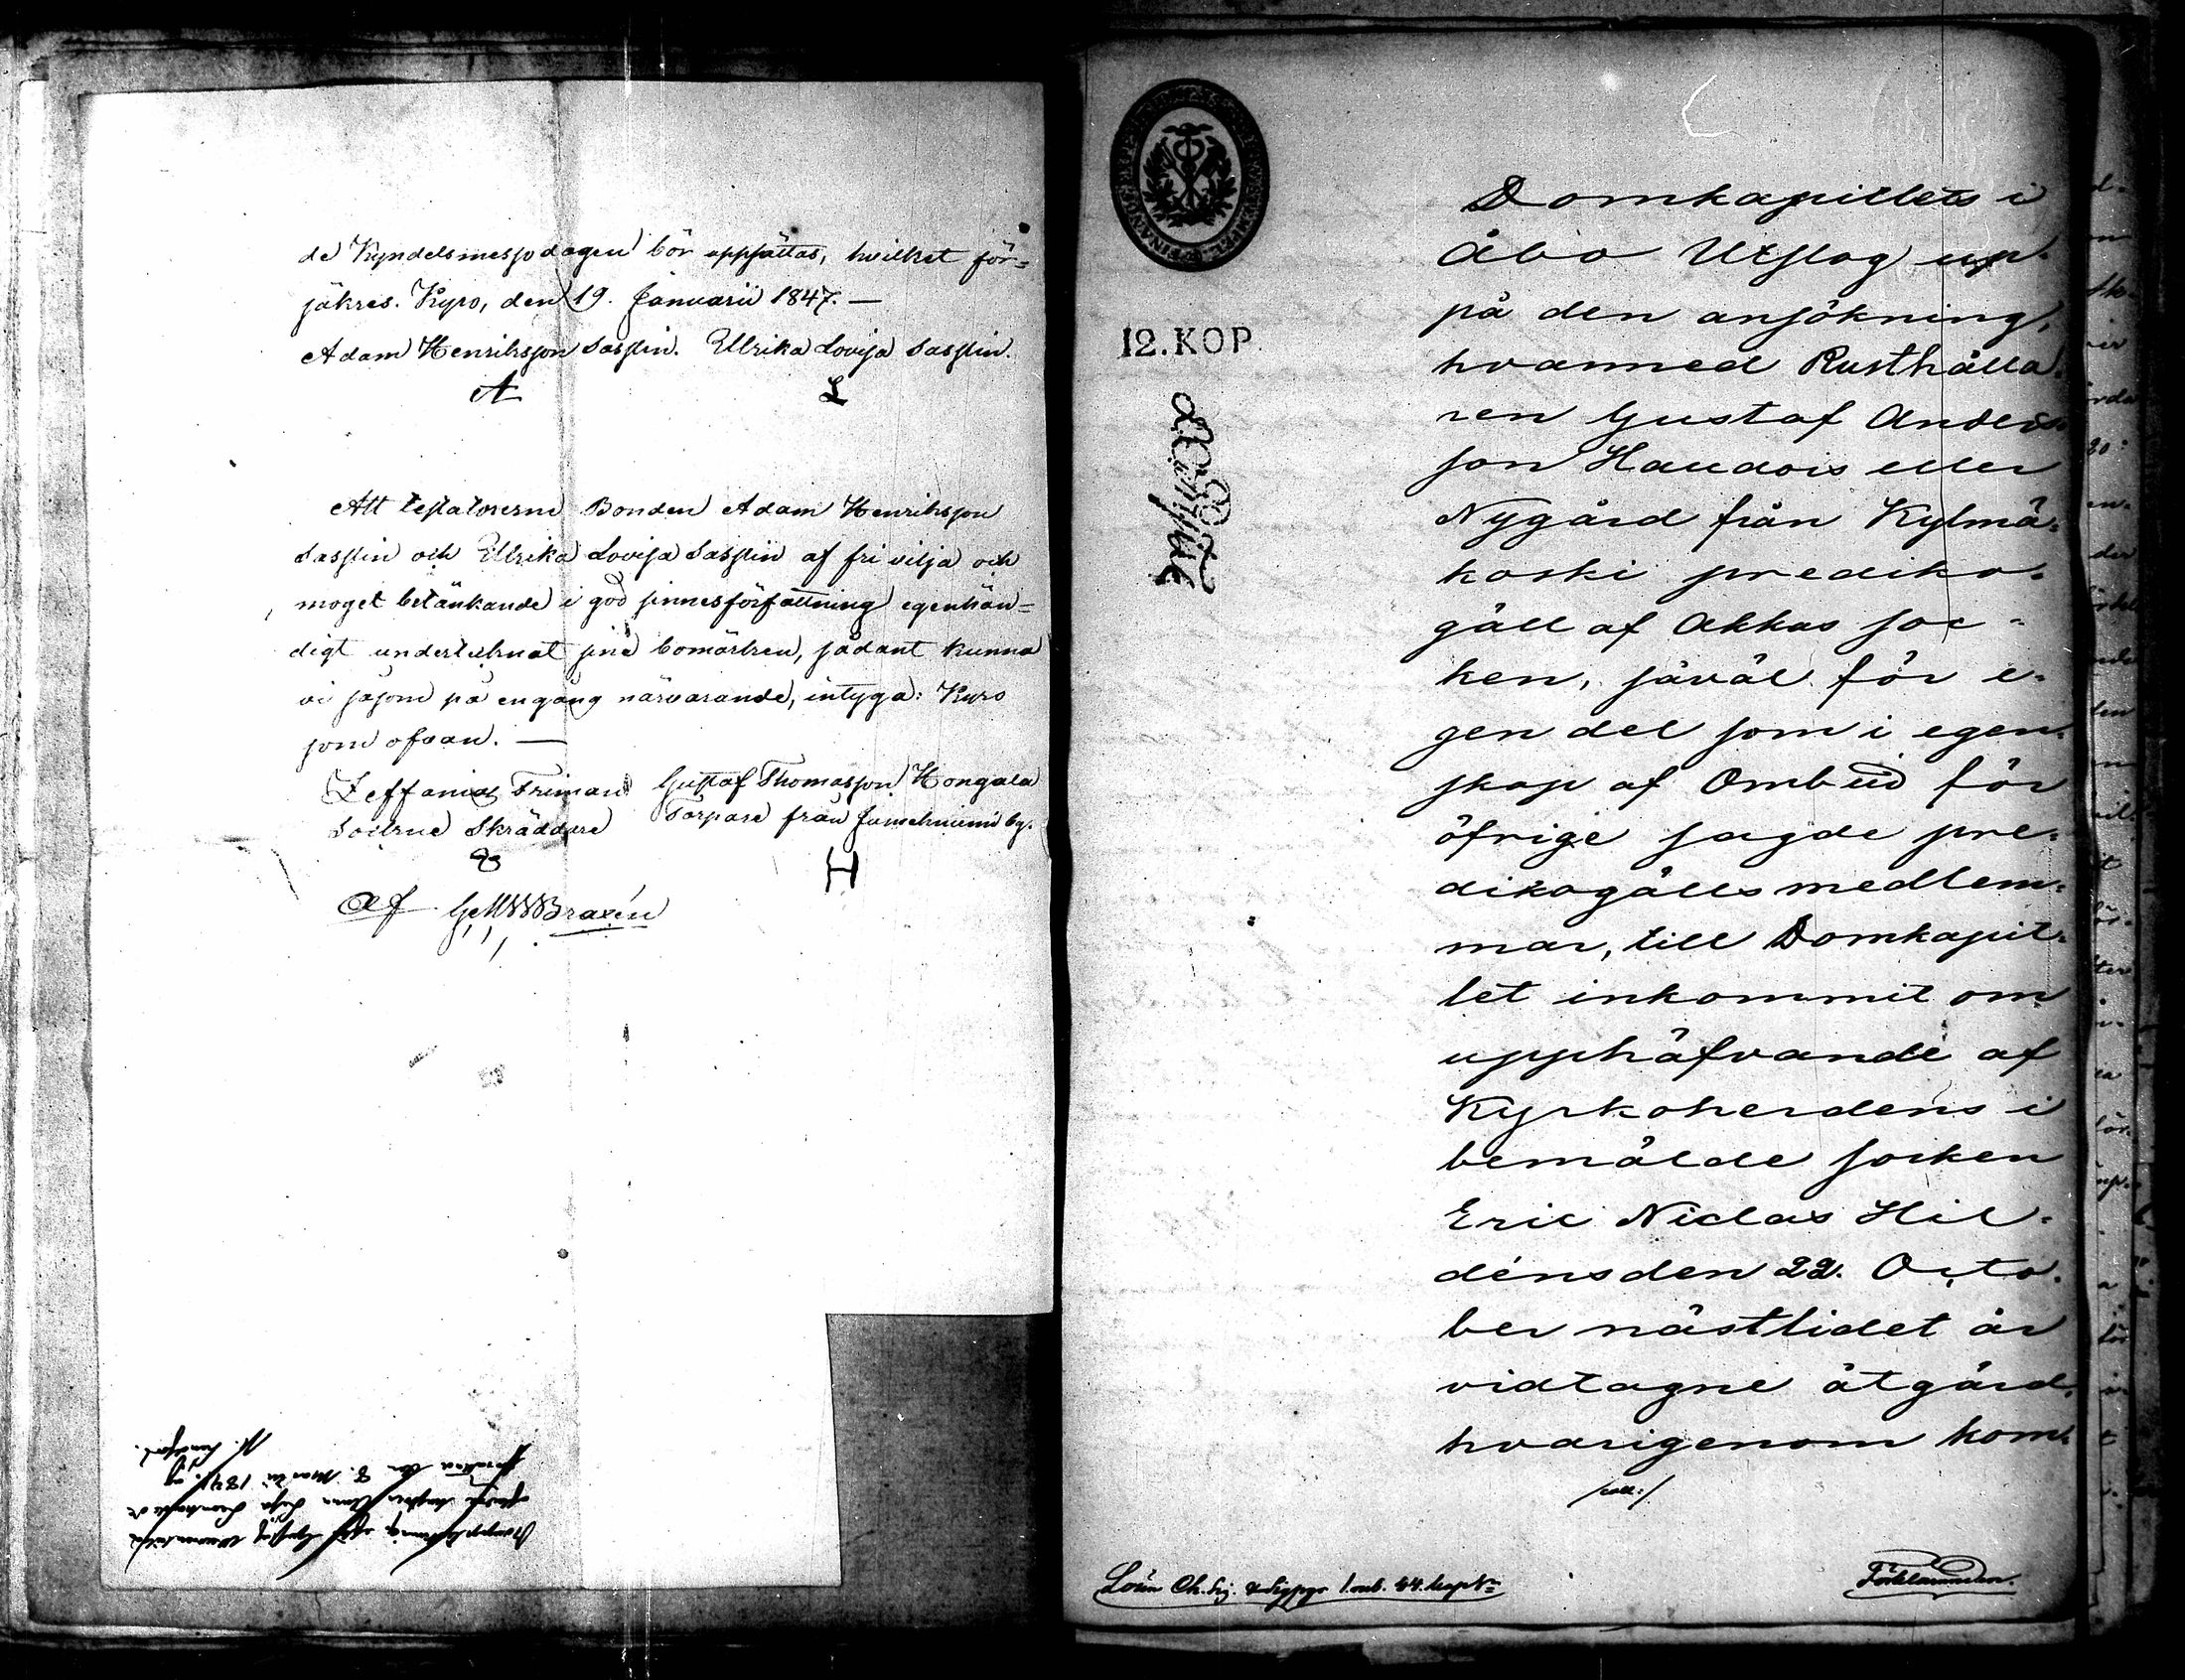 de Kyndelsmessodagen bör uppsättas, hvilket för-
säkres. Kyro, den 19. Januarii 1847. —
Adam Henriksson Sasslin. Ullrika Lovisa Sasslin.
A L
Att testatorerne Bonden Adam Henriksson
Sasslin och Ullrika Lovisa Sasslin af fri vilja och
moget betänkande i god sinnesförfattning egenhän-
digt undertecknat sine bomärken, sådant kunna
vi såsom på engång närvarande, intyga: Kyro
som ofvan. —
Zeffanias Friman Gustaf Thomasson Hongala
Sockne Skräddare Torpare från by.
H
Af Braxén
den 8. Martii
Domkapitlets i
Åbo Utslag up-
på den ansökning,
hvarmed Rusthålla-
ren Gustaf Anders-
son Haudois eller
Nygård från Kylmä-
koski prediko-
gäll af Akkas soc-
ken, såväl för e-
gen del som i egen-
skap af Ombud för
öfrige sagde pre-
dikogälls medlem-
mar, till Domkapit-
let inkommit om
upphäfvande af
Kyrkoherdens i
bemälde socken
Eric Niclas Hil-
déns den 22. Octo-
ber nästlidet år
vidtagne åtgärd,
hvarigenom kom-
/coll:/
12. KOP.
Förklaranden.